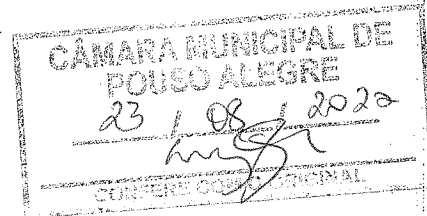 CÂMARA MUNICIPAL DE
POUSO ALEGRE
23 / 08 / 2022
CONFERE COM O ORIGINAL